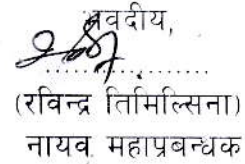 भवदीय,
(रविन्द्र तिमिल्सिना)
नायव महाप्रबन्धक